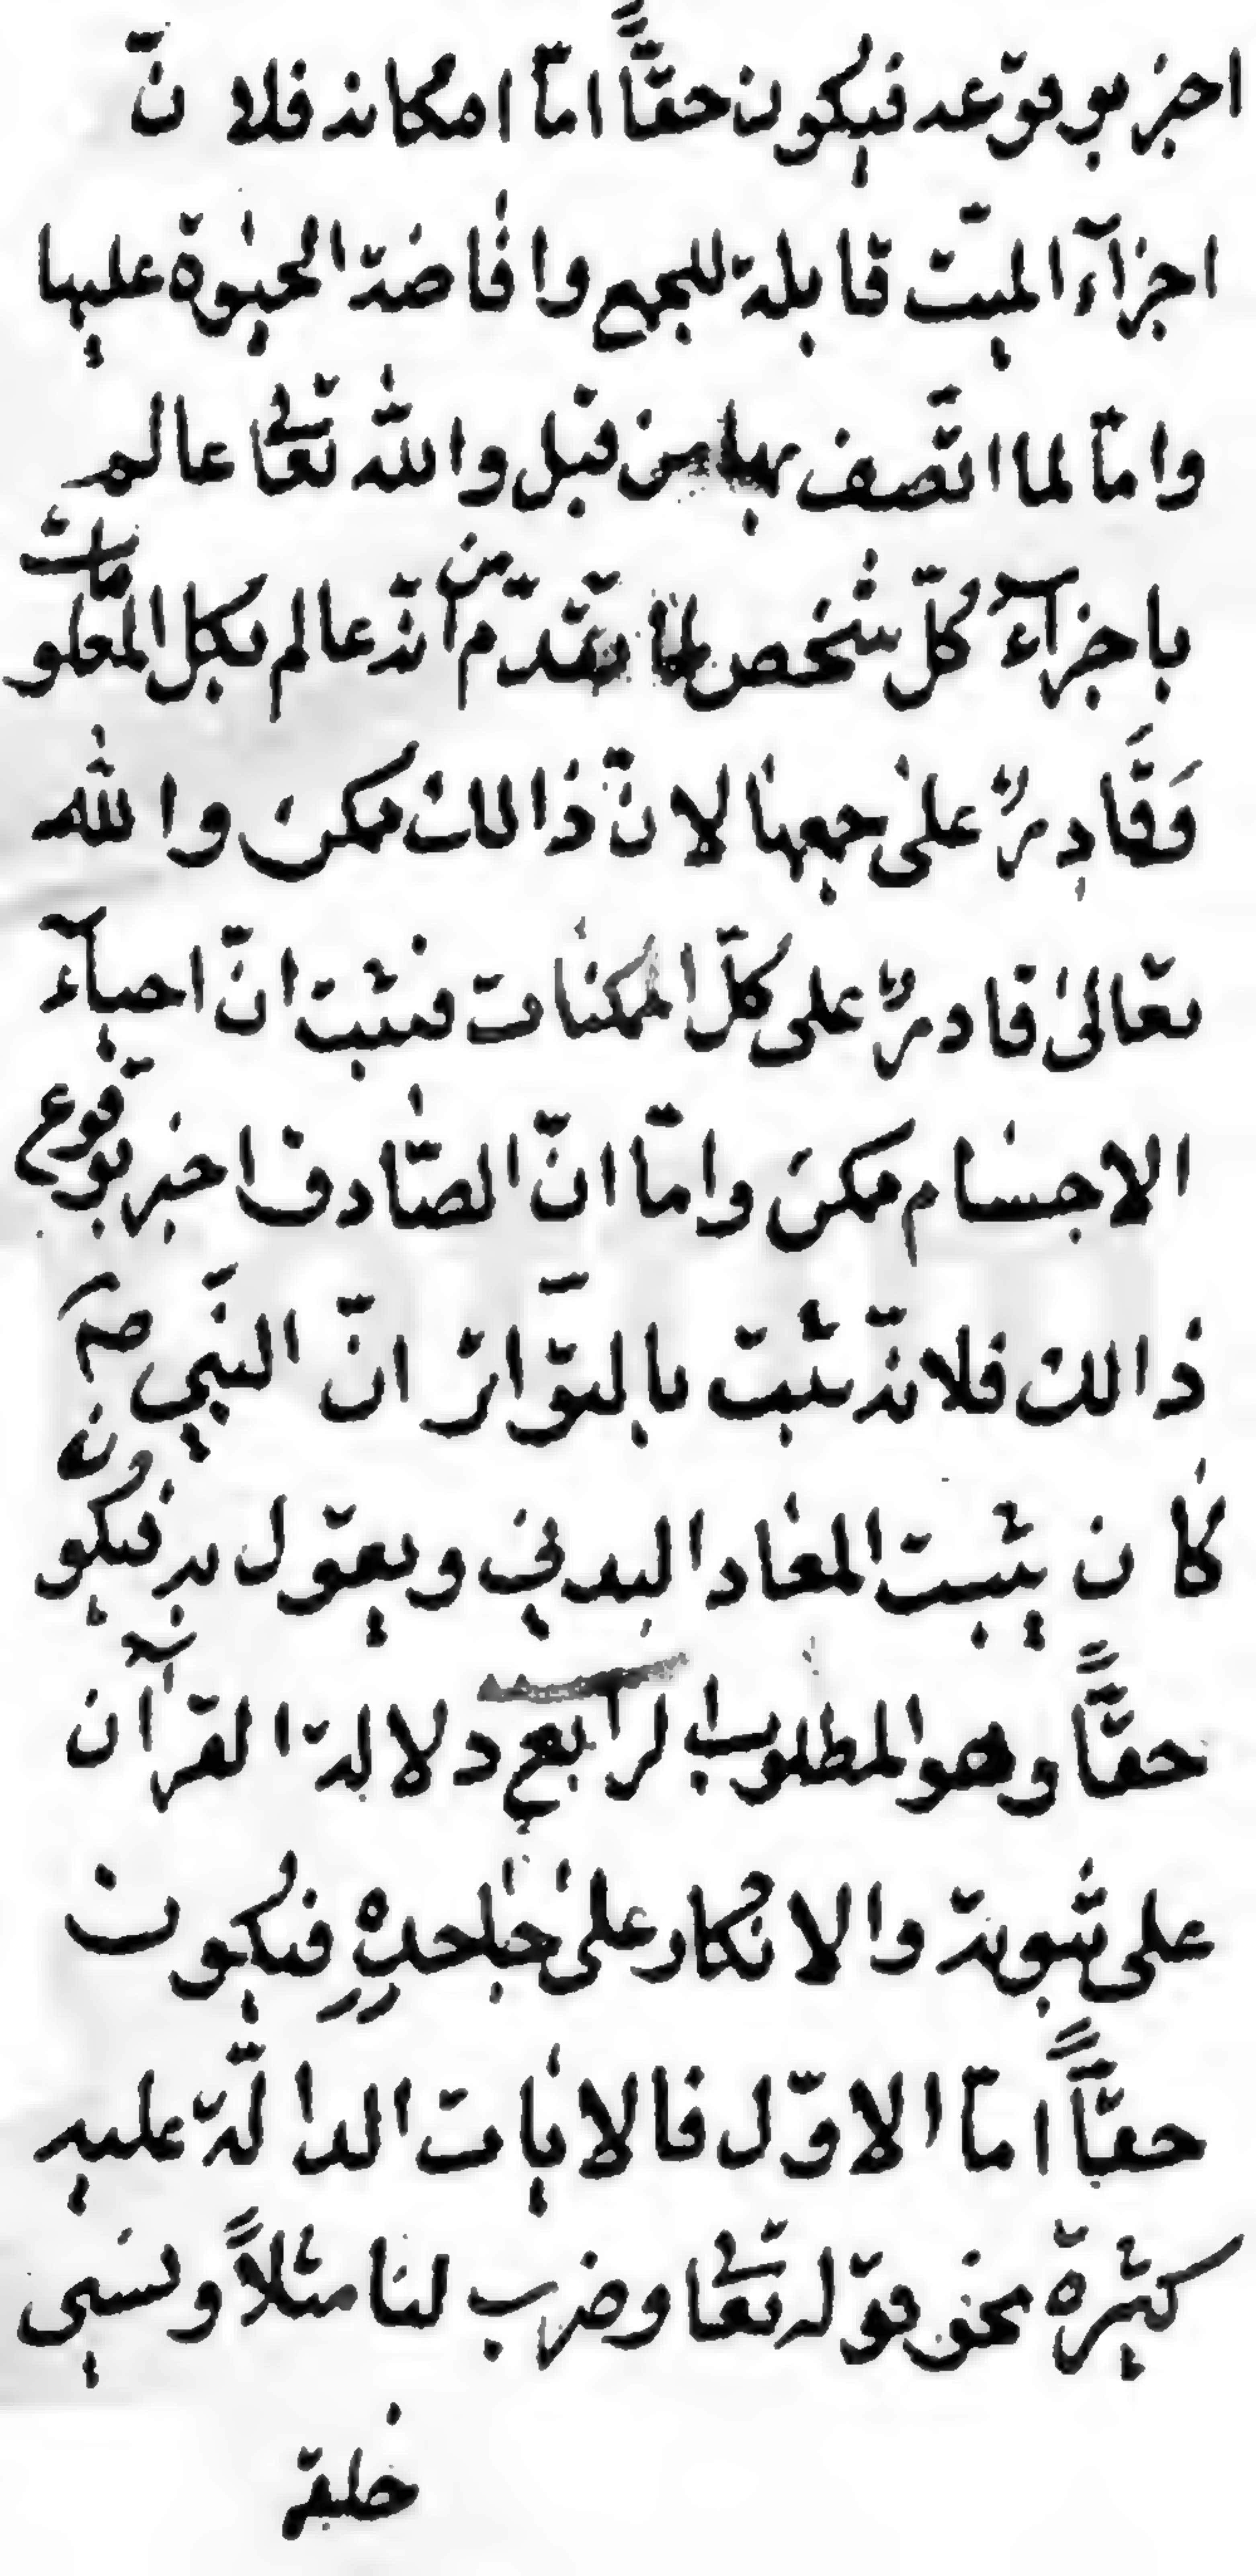 اخبر بوقوعه فيكون حقّاً امّا امكانه فلانّ
اجزآء الميّت قابلة للجمع وافاضة الحيوة عليها
وامّا لما اتّصف بها من قبل والله تعالى عالم
باجزآء كلّ شخص لما تقدّم من انّه عالم بكل المعلومات
وَقَادِرٌ على جمعها لانّ ذالك ممكن والله
تعالى قادرٌ على كلّ الممكنات فثبت انّ احياء
الاجسام ممكن وامّا انّ الصّادق اخبر بوقوع
ذالك فلانّه ثبت بالتّواتر انّ النّبي صم
كان يثبت المعاد البدني ويقول به فيكون
حقّاً وهو المطلوب الرابع دلالة القرآن
على ثبوته والانكار على جاحدهِ فيكون
حقّاً امّا الاوّل فالايات الدالّة عليه
كثيرة نحو قوله تعالى وضرب لنا مثلاً ونسي
خلقه